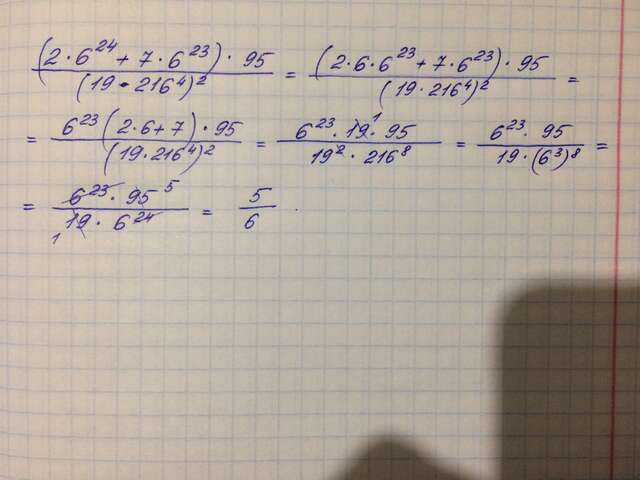 (2·6²⁴ + 7·6²³)·95 / (19·216⁴)² = (2·6·6²³ + 7·6²³)·95 / (19·216⁴)² =
= 6²³(2·6+7)·95 / (19·216⁴)² = 6²³·19¹·95 / 19²·216⁸ = 6²³·95 / 19·(6³)⁸ =
= 6²³·95 ⁵ / ₁ 19·6²⁴ = 5/6.